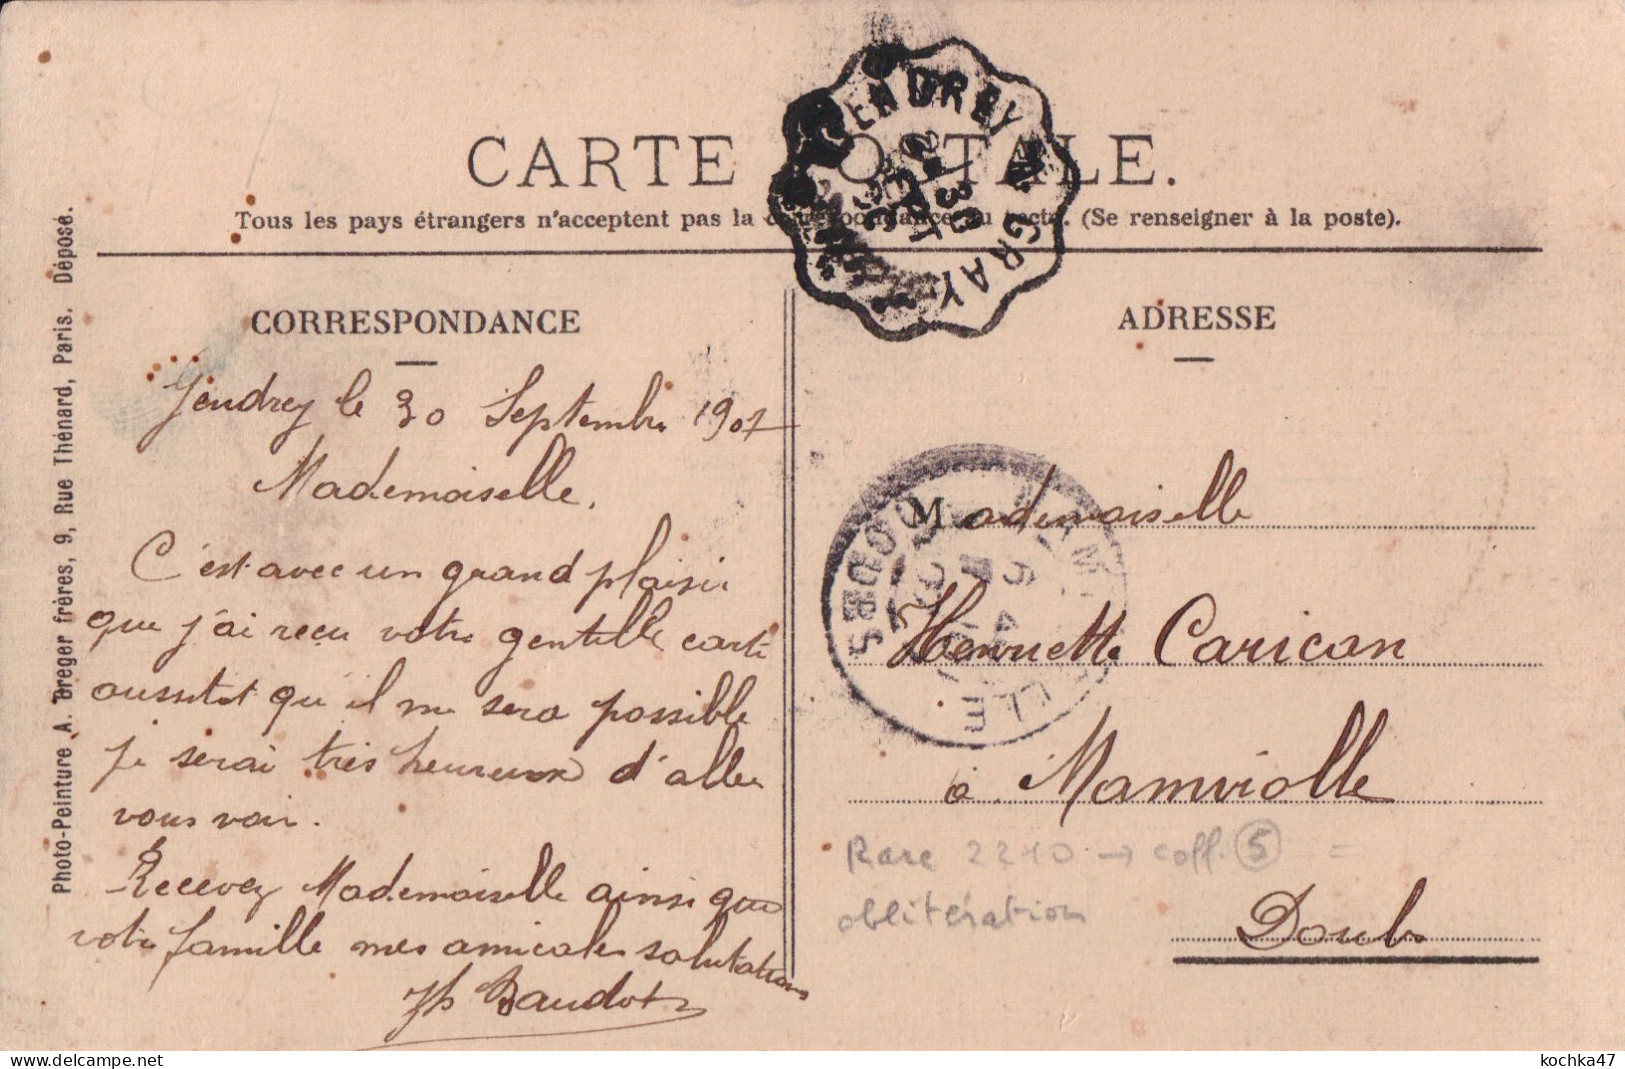 CARTE POSTALE.
Tous les pays étrangers n'acceptent pas la correspondance au recto. (Se renseigner à la poste).
GENDREY
GRAY
CORRESPONDANCE
Jendrey le 30 Septembre 1907
Mademoiselle.
C'est avec un grand plaisir
que j'ai reçu votre gentille carte
aussitot qu'il me sera possible
je serai très heureux d'aller
vous voir.
Recevez Mademoiselle ainsi que
votre famille mes amicales salutations
Jh Baudot
ADRESSE
Mademoiselle
Henriette Carican
à Mamirolle
Doubs
DOUBS
Rare 2210 → coff. 5 =
oblitération
Photo-Peinture A. Breger frères, 9, Rue Thénard, Paris. Déposé.
kochka47
www.delcampe.net